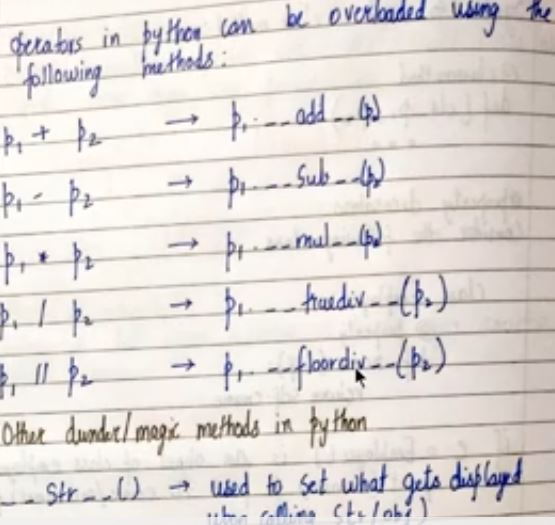 operators in python can be overloaded using the
following methods:
p1 + p2 → p1.__add__(p2)
p1 - p2 → p1.__sub__(p2)
p1 * p2 → p1.__mul__(p2)
p1 / p2 → p1.__truediv__(p2)
p1 // p2 → p1.__floordiv__(p2)
Other dunder/magic methods in python
__str__() → used to set what gets displayed
upon calling str(obj)